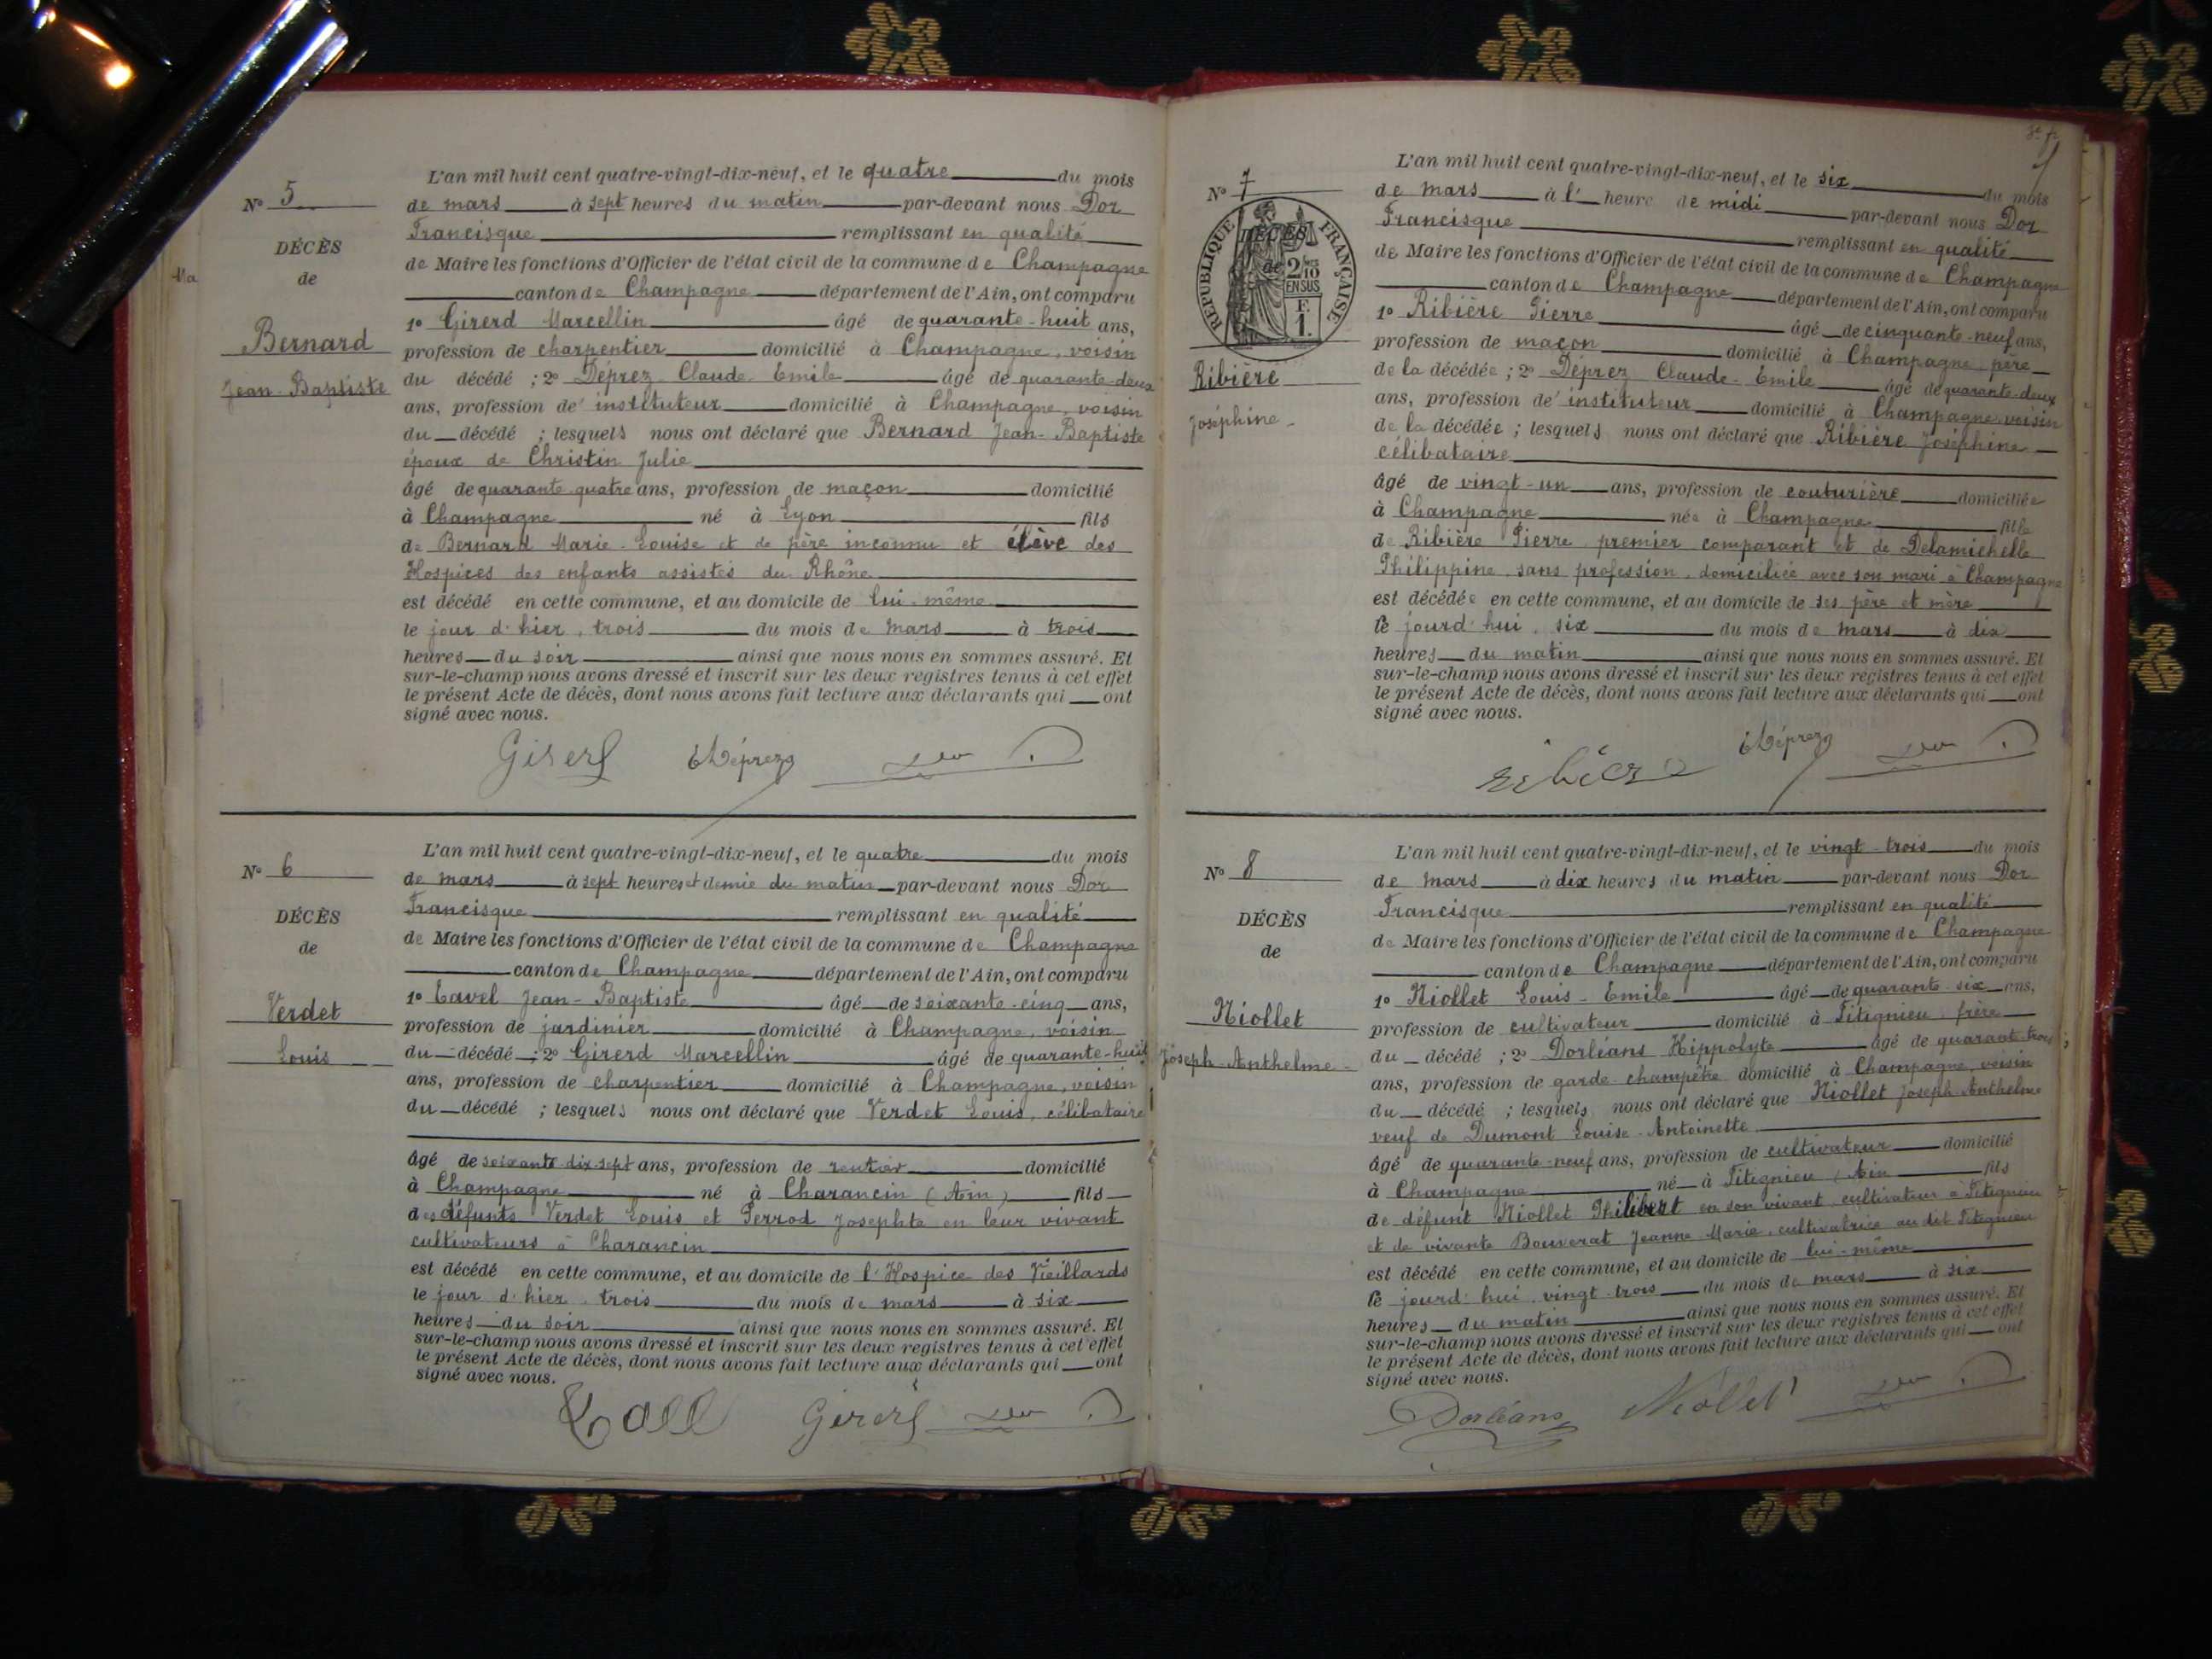 Ma
N° 5
DÉCÈS
de
Bernard
Jean-Baptiste
L'an mil huit cent quatre-vingt-dix-neuf, et le quatre du mois
de mars à sept heures du matin par-devant nous Dor
Francisque remplissant en qualité
de Maire les fonctions d'Officier de l'état civil de la commune de Champagne
canton de Champagne département de l'Ain, ont comparu
1° Girerd Marcellin âgé de quarante-huit ans,
profession de charpentier domicilié à Champagne, voisin
du décédé ; 2° Déprez Claude-Emile âgé de quarante-deux
ans, profession d'instituteur domicilié à Champagne, voisin
du décédé ; lesquels nous ont déclaré que Bernard Jean-Baptiste
époux de Christin Julie
âgé de quarante-quatre ans, profession de maçon domicilié
à Champagne né à Lyon fils
de Bernard Marie-Louise et de père inconnu et élève des
Hospices des enfants assistés du Rhône
est décédé en cette commune, et au domicile de lui-même
le jour d'hier, trois du mois de mars à trois
heures du soir ainsi que nous nous en sommes assuré. Et
sur-le-champ nous avons dressé et inscrit sur les deux registres tenus à cet effet
le présent Acte de décès, dont nous avons fait lecture aux déclarants qui ont
signé avec nous.
Girerd Déprez
N° 6
DÉCÈS
de
Verdet
Louis
L'an mil huit cent quatre-vingt-dix-neuf, et le quatre du mois
de mars à sept heures et demie du matin par-devant nous Dor
Francisque remplissant en qualité
de Maire les fonctions d'Officier de l'état civil de la commune de Champagne
canton de Champagne département de l'Ain, ont comparu
1° Tavel Jean-Baptiste âgé de soixante-cinq ans,
profession de jardinier domicilié à Champagne, voisin
du décédé ; 2° Girerd Marcellin âgé de quarante-huit
ans, profession de charpentier domicilié à Champagne, voisin
du décédé ; lesquels nous ont déclaré que Verdet Louis, célibataire
âgé de soixante-dix-sept ans, profession de rentier domicilié
à Champagne né à Charancin (Ain) fils
des défunts Verdet Louis et Perrod Josephte en leur vivant
cultivateurs à Charancin
est décédé en cette commune, et au domicile de l'Hospice des Vieillards
le jour d'hier, trois du mois de mars à six
heures du soir ainsi que nous nous en sommes assuré. Et
sur-le-champ nous avons dressé et inscrit sur les deux registres tenus à cet effet
le présent Acte de décès, dont nous avons fait lecture aux déclarants qui ont
signé avec nous.
Girerd
N° 7
DÉCÈS
de
RÉPUBLIQUE FRANÇAISE
2/10 EN SUS
F.
1.
Ribière
Joséphine
L'an mil huit cent quatre-vingt-dix-neuf, et le six du mois
de mars à l'heure de midi par-devant nous Dor
Francisque remplissant en qualité
de Maire les fonctions d'Officier de l'état civil de la commune de Champagne
canton de Champagne département de l'Ain, ont comparu
1° Ribière Pierre âgé de cinquante-neuf ans,
profession de maçon domicilié à Champagne, père
de la décédée ; 2° Déprez Claude-Emile âgé de quarante-deux
ans, profession d'instituteur domicilié à Champagne, voisin
de la décédée ; lesquels nous ont déclaré que Ribière Joséphine
célibataire
âgé de vingt-un ans, profession de couturière domiciliée
à Champagne née à Champagne fille
de Ribière Pierre premier comparant et de Delamichelle
Philippine, sans profession, domiciliée avec son mari à Champagne
est décédée en cette commune, et au domicile de ses père et mère
le jourd'hui, six du mois de mars à dix
heures du matin ainsi que nous nous en sommes assuré. Et
sur-le-champ nous avons dressé et inscrit sur les deux registres tenus à cet effet
le présent Acte de décès, dont nous avons fait lecture aux déclarants qui ont
signé avec nous.
Ribière Déprez
N° 8
DÉCÈS
de
Niollet
Joseph-Anthelme
L'an mil huit cent quatre-vingt-dix-neuf, et le vingt-trois du mois
de mars à dix heures du matin par-devant nous Dor
Francisque remplissant en qualité
de Maire les fonctions d'Officier de l'état civil de la commune de Champagne
canton de Champagne département de l'Ain, ont comparu
1° Niollet Louis-Emile âgé de quarante-six ans,
profession de cultivateur domicilié à Titignieu, frère
du décédé ; 2° Dorléans Hippolyte âgé de quarante-trois
ans, profession de garde-champêtre domicilié à Champagne, voisin
du décédé ; lesquels nous ont déclaré que Niollet Joseph-Anthelme
veuf de Dumont Louise-Antoinette
âgé de quarante-neuf ans, profession de cultivateur domicilié
à Champagne né à Titignieu (Ain fils
de défunt Niollet Philibert en son vivant cultivateur à Titignieu
et de vivante Bouverat Jeanne-Marie, cultivatrice au dit Titignieu
est décédé en cette commune, et au domicile de lui-même
le jourd'hui, vingt-trois du mois de mars à six
heures du matin ainsi que nous nous en sommes assuré. Et
sur-le-champ nous avons dressé et inscrit sur les deux registres tenus à cet effet
le présent Acte de décès, dont nous avons fait lecture aux déclarants qui ont
signé avec nous.
Dorléans Niollet